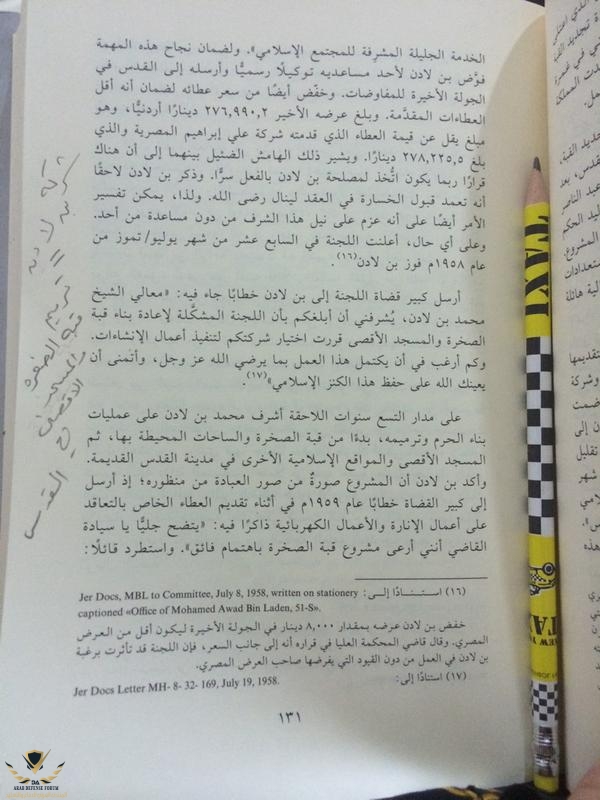 الخدمة الجليلة المشرِفة للمجتمع الإسلامي». ولضمان نجاح هذه المهمة
فوَّض بن لادن لأحد مساعديه توكيلًا رسميًّا وأرسله إلى القدس في
الجولة الأخيرة للمفاوضات. وخفّض أيضًا من سعر عطائه لضمان أنه أقل
العطاءات المقدَّمة. وبلغ عرضه الأخير ٢٧٦,٩٩٠,٢ دينارًا أردنيًّا، وهو
مبلغ يقل عن قيمة العطاء الذي قدمته شركة علي إبراهيم المصرية والذي
بلغ ٢٧٨,٢٢٥,٥ دينارًا. ويشير ذلك الهامش الضئيل بينهما إلى أن هناك
قرارًا ربما يكون اتُّخذ لمصلحة بن لادن بالفعل سرًّا. وذكر بن لادن لاحقًا
أنه تعمد قبول الخسارة في العقد لينال رضى الله. ولذا، يمكن تفسير
الأمر أيضًا على أنه عزم على نيل هذا الشرف من دون مساعدة من أحد.
وعلى أي حال، أعلنت اللجنة في السابع عشر من شهر يوليو/ تموز من
عام ١٩٥٨م فوز بن لادن(١٦).
أرسل كبير قضاة اللجنة إلى بن لادن خطابًا جاء فيه: «معالي الشيخ
محمد بن لادن، يُشرفني أن أبلغكم بأن اللجنة المشكَّلة لإعادة بناء قبة
الصخرة والمسجد الأقصى قررت اختيار شركتكم لتنفيذ أعمال الإنشاءات.
وكم أرغب في أن يكتمل هذا العمل بما يرضي الله عز وجل، وأتمنى أن
يعينك الله على حفظ هذا الكنز الإسلامي»(١٧).
على مدار التسع سنوات اللاحقة أشرف محمد بن لادن على عمليات
بناء الحرم وترميمه، بدءًا من قبة الصخرة والساحات المحيطة بها، ثم
المسجد الأقصى والمواقع الإسلامية الأخرى في مدينة القدس القديمة.
وأكد بن لادن أن المشروع صورةٌ من صور العبادة من منظوره؛ إذ أرسل
إلى كبير القضاة خطابًا عام ١٩٥٩م في أثناء تقديم العطاء الخاص بالتعاقد
على أعمال الإنارة والأعمال الكهربائية ذاكرًا فيه: «يتضح جليًّا يا سيادة
القاضي أنني أرعى مشروع قبة الصخرة باهتمام فائق». واستطرد قائلًا:
(١٦) استنادًا إلى: Jer Docs, MBL to Committee, July 8, 1958, written on stationery
captioned «Office of Mohamed Awad Bin Laden, 51-S».
خفض بن لادن عرضه بمقدار ٨,٠٠٠ دينار في الجولة الأخيرة ليكون أقل من العرض
المصري. وقال قاضي المحكمة العليا في قراره أنه إلى جانب السعر، فإن اللجنة قد تأثرت برغبة
بن لادن في العمل من دون القيود التي يفرضها صاحب العرض المصري.
(١٧) استنادًا إلى:
Jer Docs Letter MH- 8- 32- 169, July 19, 1958.
١٣١
شركة بن لادن
ترميم قبة الصخرة
والمسجد الأقصى
في القدس
TAXI
NEW YORK
TAXI
DA
ARAB DEFENSE FORUM